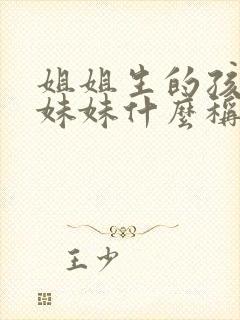 姐姐生的孩
妹妹什麼稱
王少